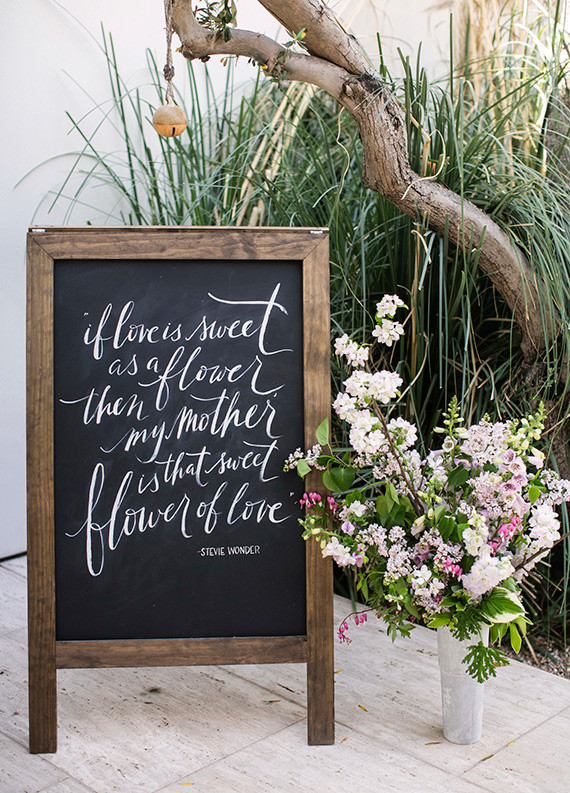 "if love is sweet
as a flower
then my
mother
is that sweet
flower of love"
-STEVIE WONDER